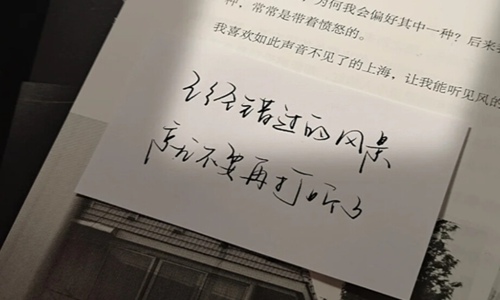 为何我会偏好其中一种？后来
种，常常是带着愤怒的。
我喜欢如此声音不见了的上海，让我能听见风的
已经错过的风景
就不要再打听了